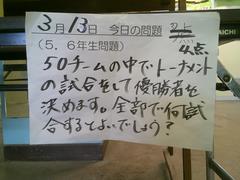 3月13日 今日の問題
(5、6年生問題) 4点
50チームの中でトーナメント
の試合をして優勝者を
決めます。全部で何試
合するとよいでしょう？
AICHI